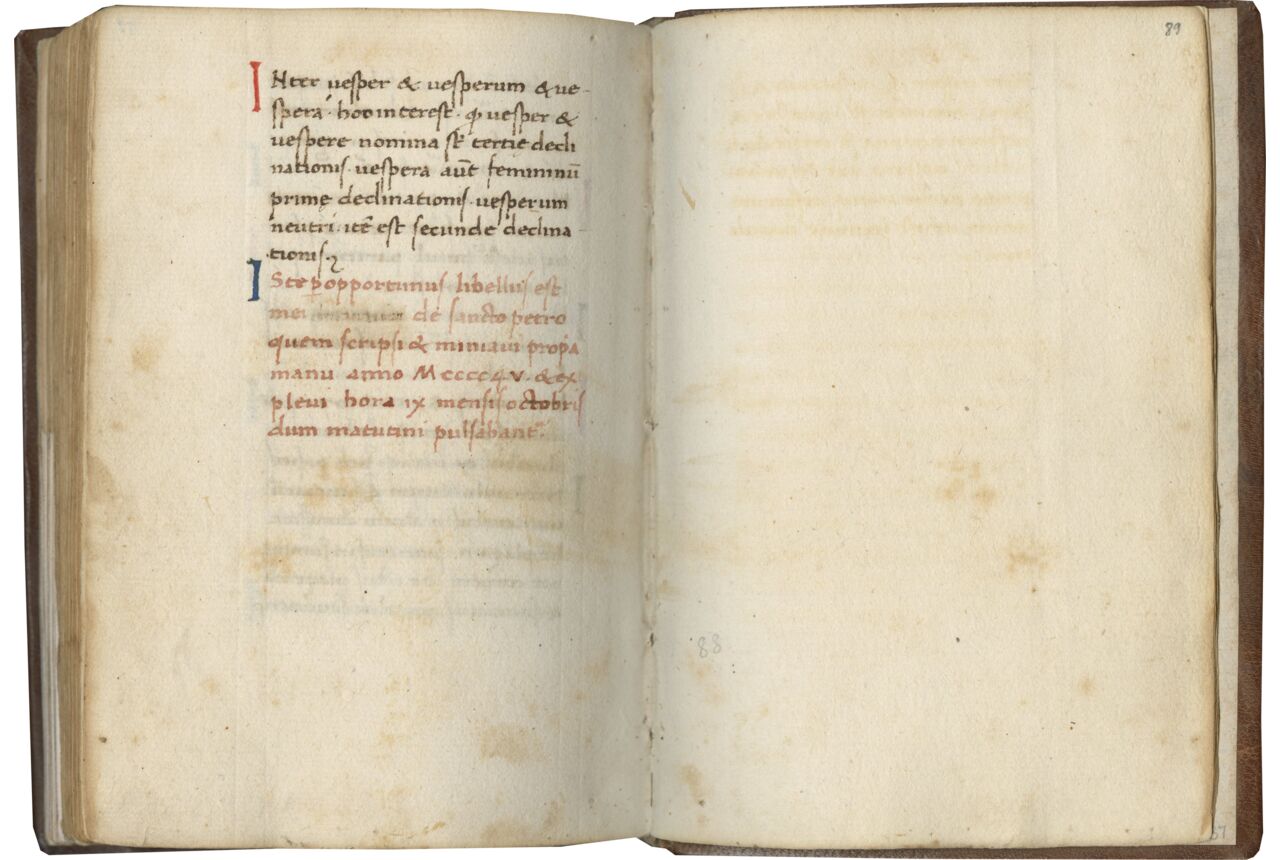 INter vesper & vesperum & ve-
sperā· hoc interest· ꝙ vesper &
vespere nomina sṫ tertię decli
nationis· vespera aūt femininū
primę declinationis· vesperum
neutri· itē est secunde declina-
tionis·
ISte ꝑopportunus libellus est
mei de sancto petro
quem scripsi & miniavi propa
manu anno Mcccc V· & ex
plevi hora ix mensis octobris
dum matutini pulsabant᷑·
89
88